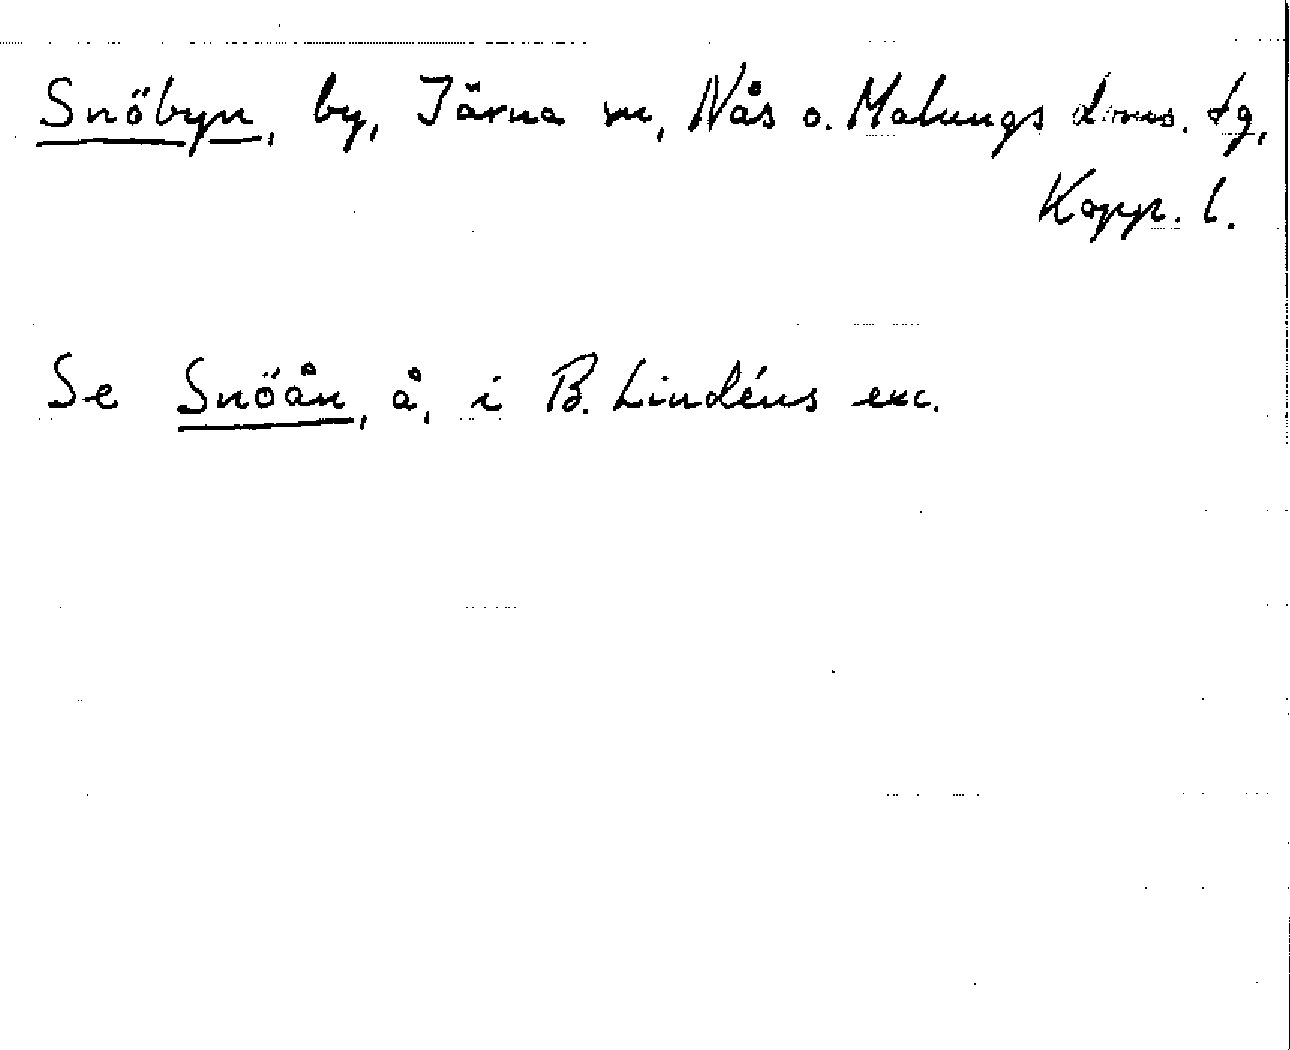 Snöbyn, by, Järna sn, Nås o. Malungs doms. tg,
Kopp. l.
Se Snöån, å, i B. Lindéns exc.